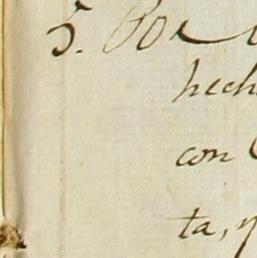 5. Por
hech
con
ta, y